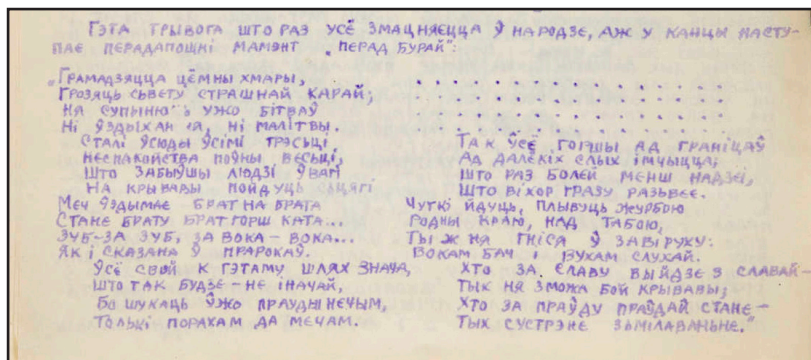 Гэта трывога што раз усё змацняецца ў народзе, аж у канцы насту-
пае перадапошні мамэнт „перад бурай":
„Грамадзяцца цёмны хмары,
Грозяць сьвету страшнай карай;
Ня супыню ўжо бітваў
Ні ўздыхання, ні малітвы.
Сталі ўсюды ўсімі трэсьці,
Неспакойства поўны весьці,
Што забыўшы людзі ўвам
На крывавы пойдуць сьцягі
Меч ўздымае брат на брата
Стане брату брат горш ката...
Зуб–за зуб, за вока – вока...
Як і сказана ў прарокаў.
Ўсё свой к гэтаму шлях знача,
Што так будзе – не іначай,
Бо шукаць ўжо праўды нечым,
Толькі порахам да мечам.
. . . . . . . . . . . . . . .
. . . . . . . . . . . . . . .
. . . . . . . . . . . . . . .
. . . . . . . . . . . . . . .
Так ўсё горшы ад граніцаў
Ад далёкіх слых імчыцца;
Што раз болей менш надзеі,
Што віхор гразу разьвее.
Чуткі йдуць, плывуць журбою
Родны краю, над табою,
Ты ж ня гніся ў завіруху:
Вокам бач і вухам слухай.
Хто за славу выйдзе з славай –
Тых ня зможа бой крывавы;
Хто за праўду праўдай стане –
Тых сустрэне зьмілаваньне."